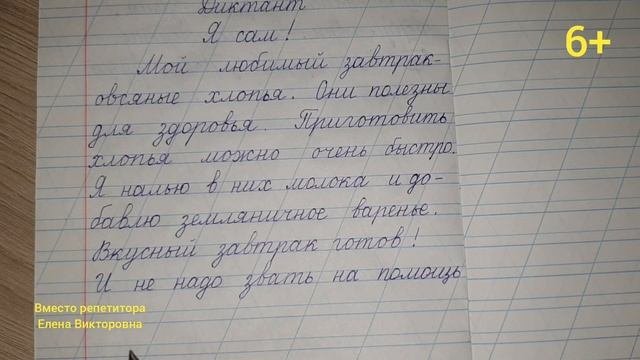 Диктант
Я сам!
6+
Мой любимый завтрак-
овсяные хлопья. Они полезны
для здоровья. Приготовить
хлопья можно очень быстро.
Я налью в них молока и до-
бавлю земляничное варенье.
Вкусный завтрак готов!
И не надо звать на помощь
Вместо репетитора
Елена Викторовна